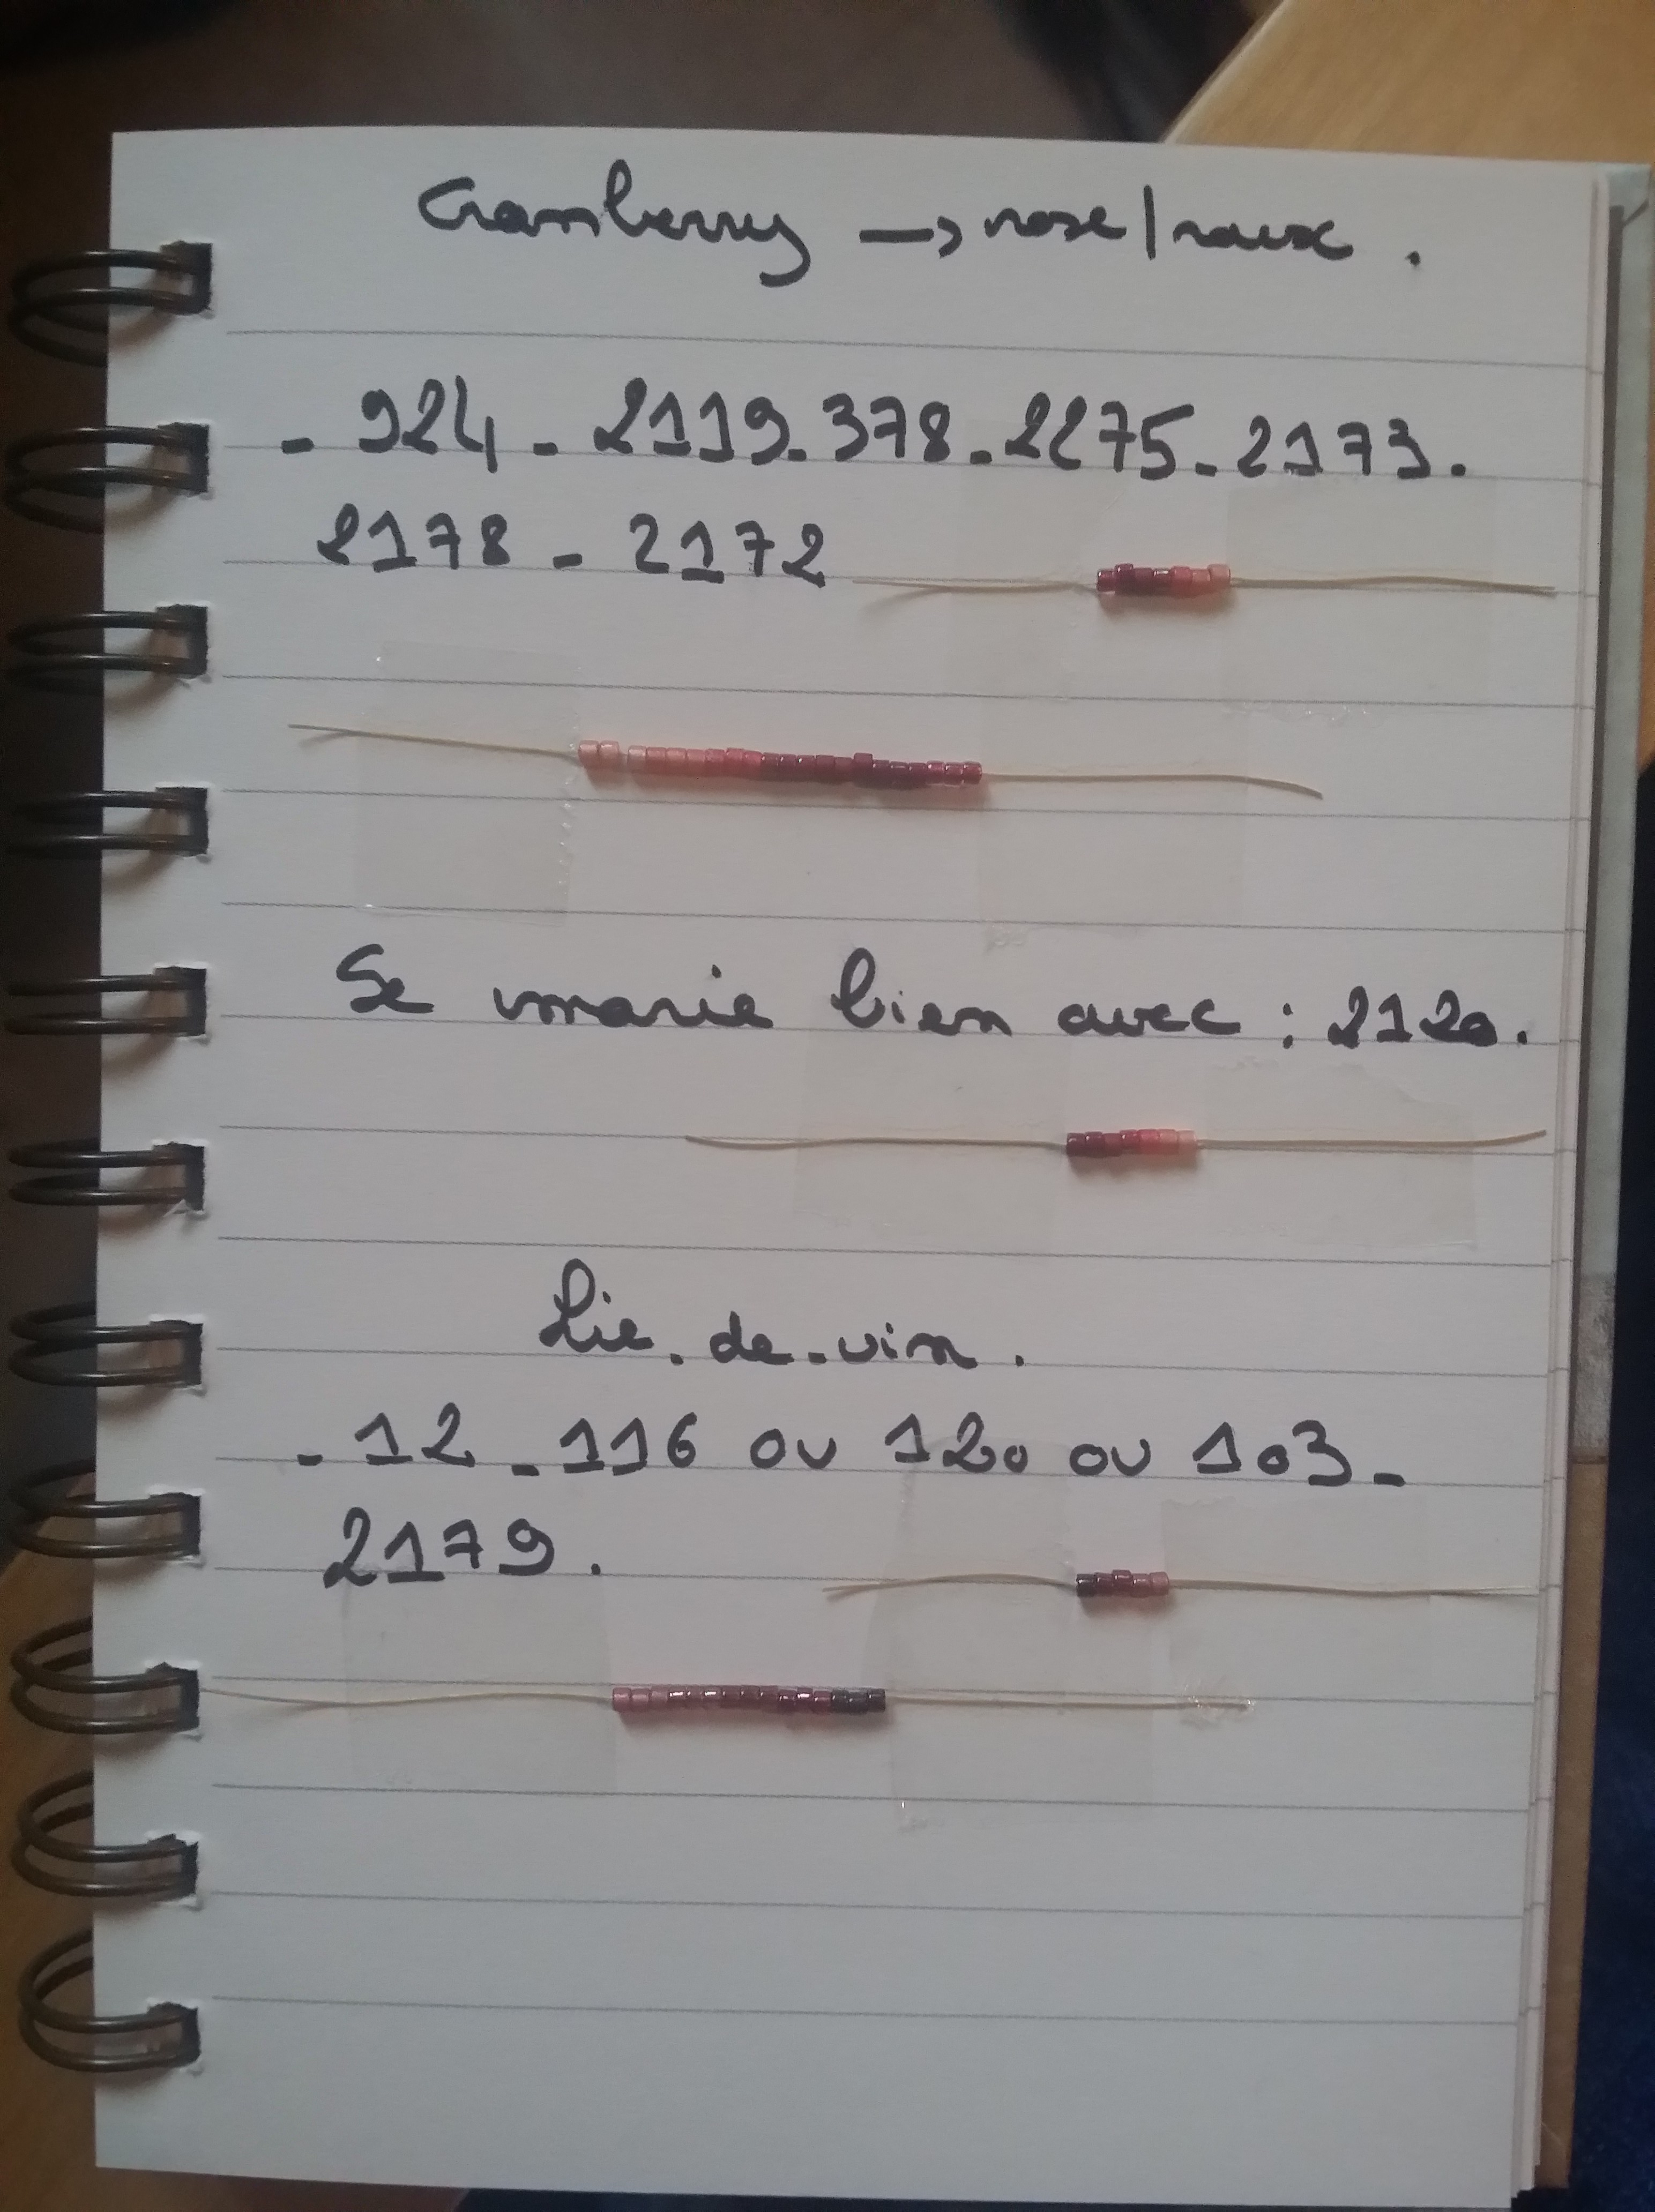 Cranberry → rose/roux.
- 924 - 2119 - 378 - 2275 - 2173.
2178 - 2172
Se marie bien avec : 2120.
Lie-de-vin.
- 12 - 116 ou 120 ou 103 -
2179.